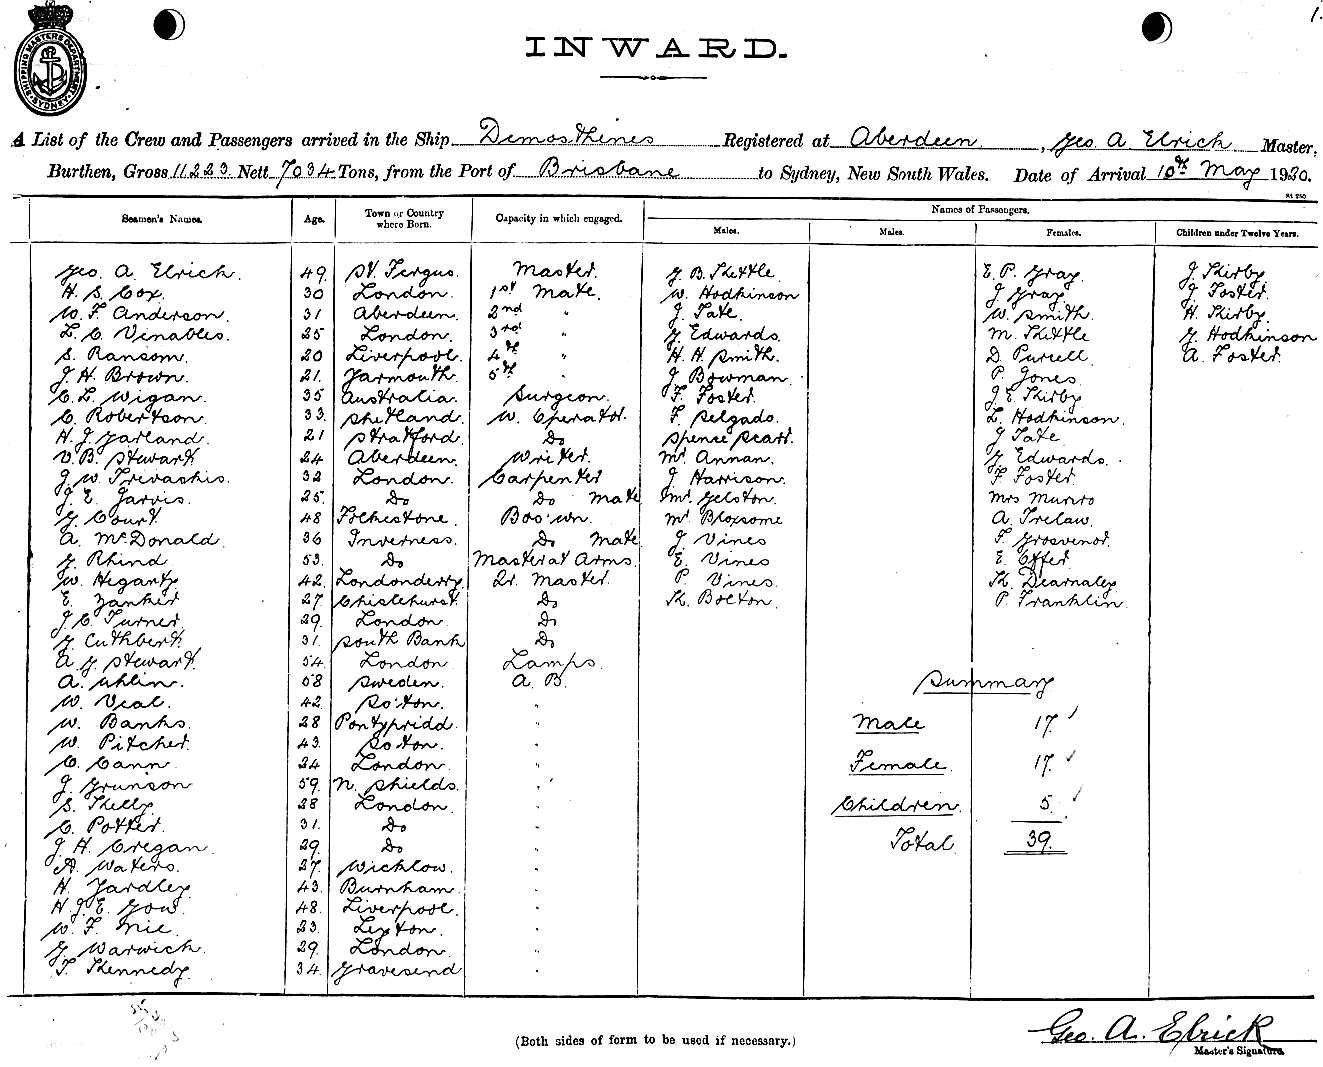 SHIPPING MASTERS DEPARTMENT SYDNEY
1.
INWARD.
A List of the Crew and Passengers arrived in the Ship Demosthines Registered at Aberdeen, Geo. A. Elrich Master,
Burthen, Gross 11223 Nett 7034 Tons, from the Port of Brisbane to Sydney, New South Wales. Date of Arrival 10th May 1920.
Names of Passengers.
Seamen's Names. Age. Town or Country where Born. Capacity in which engaged. Males. Males. Females. Children under Twelve Years.
Geo. A. Elrich. 49. St. Fergus. Master. G. B. Kettle. E. P. Gray. J Kirby.
H. S. Cox. 30 London. 1st Mate. W. Hodkinson J Gray. J Foster.
W. F. Anderson. 31 Aberdeen. 2nd " J. Tate. W. Smith. H. Kirby.
L. C. Vinables. 25 London. 3rd " G. Edwards. M. Kettle G Hodkinson
S. Ransom. 20 Liverpool. 4th " H. H. Smith. D. Purcell A. Foster.
J H. Brown. 21. Yarmouth. 5th " J Bowman. P. Jones.
C. L. Wigan. 35 Australia. Surgeon. F. Foster. J E Kirby
C. Robertson. 33. Shetland. W. Operator. F. Selgado. L. Hodkinson.
H. J. Garland. 21 Stratford. Do Spence Scarr. J Tate
V. B. Stewart. 24 Aberdeen. Writer. Mr Annan. G Edwards.
J. W. Trivaskis. 32 London. Carpenter J Harrison. F Foster.
J. E. Jarvis. 25. Do Do Mate Mr. Gelston. Mrs Munro
G. Court. 48 Folkestone. Bos'wn. Mr Bloxsome A. Trelaw.
A. McDonald. 36 Inverness. Do Mate J Vines F. Grosvenor.
G. Rhind 53. Do Master at Arms. E Vines E. Offer.
W. Hegarty 42. Londonderry. Qr. Master. P. Vines. K. Dearnaley
E. Yanker 27 Chislehurst. Do K. Bolton. P. Franklin.
J. C. Turner 29. London Do
G. Cuthbert. 31. South Bank Do
A. G. Stewart. 54. London Lamps.
A. Uhlin. 58 Sweden. A. B. Summary
W. Veal. 42. So'ton. "
W. Banks. 28 Pontypridd. " Male 17.
W. Pitcher. 43. So'ton. "
C. Cann. 24 London. " Female. 17.
J. Grunson 59. N. Shields. "
S. Kelly. 28 London. " Children. 5.
C. Potter. 31. Do "
J H. Cregan. 29. Do " Total. 39.
A. Waters. 27. Wicklow. "
H. Yardley 43. Burnham. "
H. J. E. Gow. 48. Liverpool. "
W. F. Mie. 23. Leyton. "
G. Warwick. 29. London. "
T. Kennedy. 34. Gravesend "
(Both sides of form to be used if necessary.)
Geo. A. Elrick
Master's Signature.